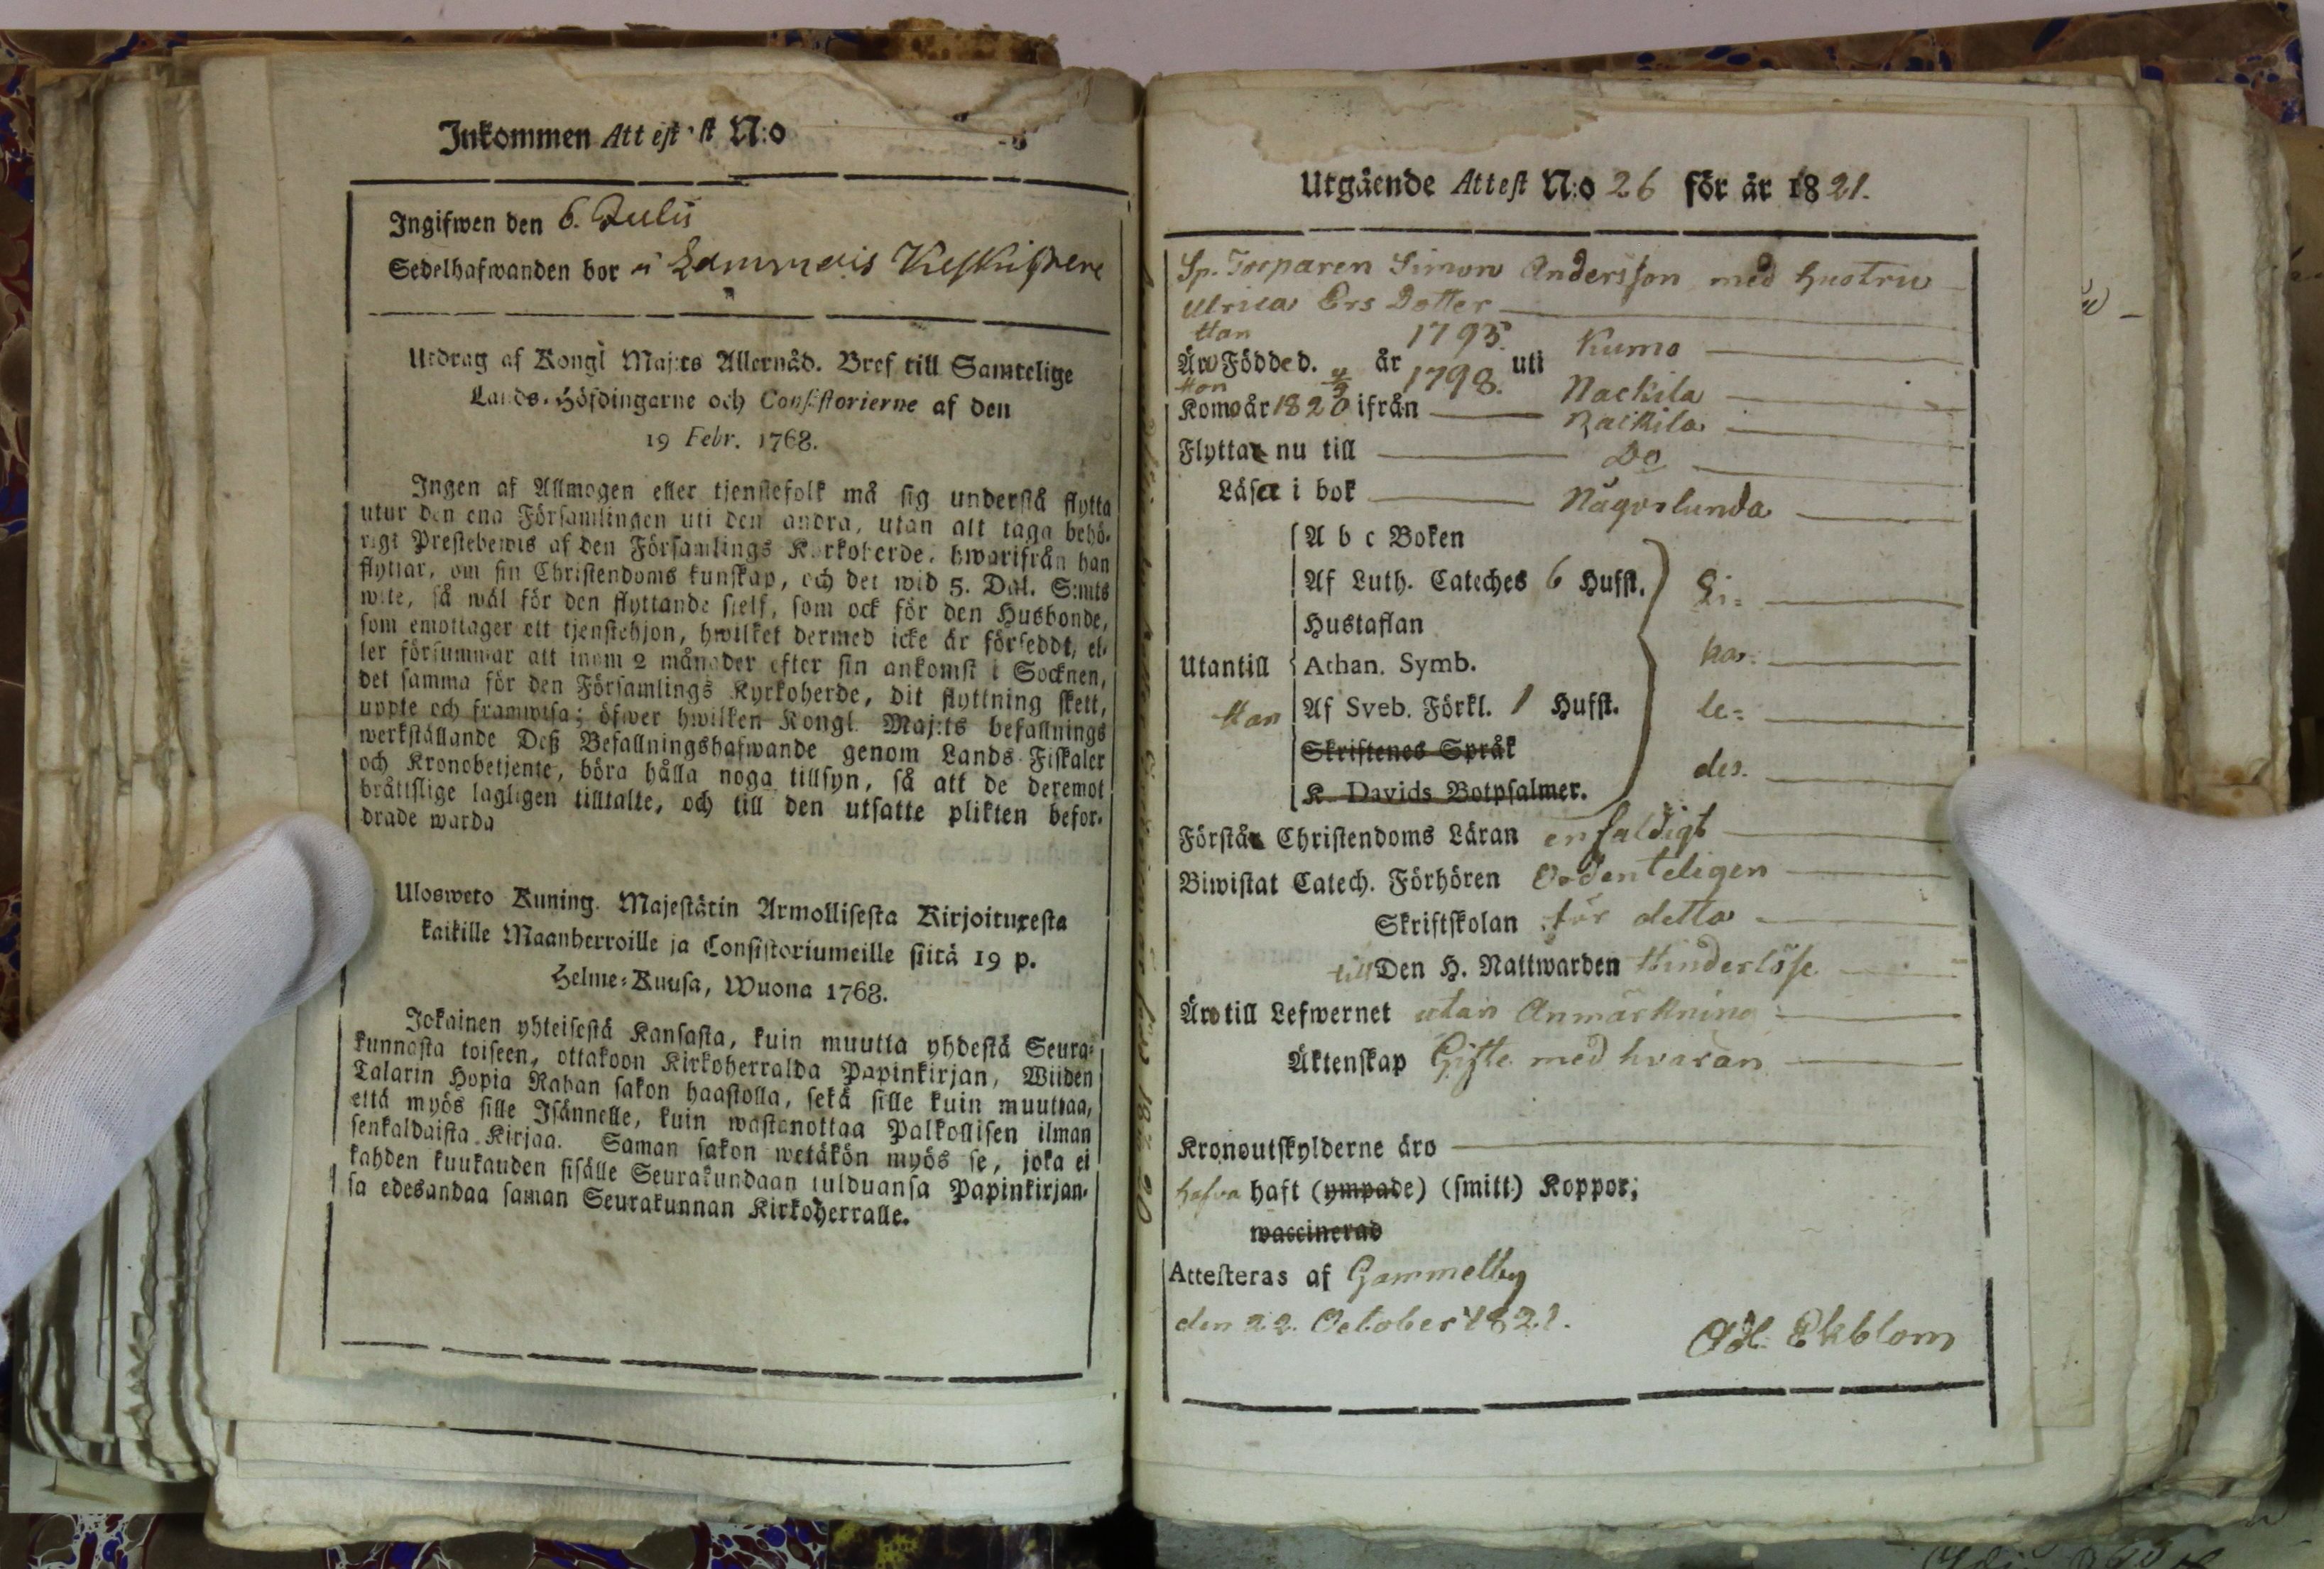 Inkommen Attest N:o
Ingifwen den 6. Julii
Sedelhafwanden bor i Lammais
Utdrag af Kongl Maj:ts Allernåd. Bref till Samtelige
Lands-Höfdingarne och Consistorierne af den
19 Febr. 1768.
Ingen af Allmogen eller tjenstefolk må sig understå flytta
utur den ena Församlingen uti den andra, utan att taga behö-
rigt Prestebewis af den Församlings Kyrkoherde, hwarifrån han
flyttar, om sin Christendoms kunskap, och det wid 5. Dal. S:mts
wite, så wäl för den flyttande sielf, som ock för den Husbonde,
som emottager ett tjenstehjon, hwilket dermed icke är förseddt, el-
ler försummar att inom 2 månader efter sin ankomst i Socknen,
det samma för den Församlings Kyrkoherde, dit flyttning skett,
uppte och framwisa; öfwer hwilken Kongl. Maj:ts befallnings
werkställande Deß Befallningshafwande genom Lands-Fiskaler
och Kronobetjente, böra hålla noga tillsyn, så att de deremot
bråttslige lagligen tilltalte, och till den utsatte plikten befor-
drade warda
Ulosweto Kuning. Majestätin Armollisesta Kirjoituxesta
kaikille Maanherroille ja Consistoriumeille siitä 19 p.
Helme-Kuusa, Wuona 1768.
Jokainen yhteisestä Kansasta, kuin muutta yhdestä Seura-
kunnasta toiseen, ottakoon Kirkoherralda Papinkirjan, Wiiden
Talarin Hopia Rahan sakon haastolla, sekä sille kuin muuttaa,
että myös sille Isännelle, kuin wastanottaa Palkollisen ilman
senkaldaista Kirjaa. Saman sakon wetäkön myös se, joka ei
kahden kuukauden sisälle Seurakundaan tulduansa Papinkirjan-
sa edesandaa saman Seurakunnan Kirkoherralle.
Utgående Attest N:o 26 för år 1821.
Sp. Torparen Simon Andersson med hustru
Ulrica Ers Dotter
Han 1795.
Äro Födde d. år uti Kumo
Hon 4/9 1798. Nackila
Komo år 1820 ifrån Raikila
Flytta nu till Do
Läsa i bok Någorlunda
A b c Boken
Af Luth. Cateches 6 Hufst. Li-
Hustaflan
Utantill Athan. Symb. ka-
Han Af Sveb. Förkl. 1 Hufst. le-
Skriftenes Språk
K. Davids Botpsalmer. des.
Förstå Christendoms Läran enfaldigt
Biwistat Catech. Förhören Ordenteligen
Skriftskolan för detta
till Den H. Nattwarden Hinderlöse
Äro till Lefwernet utan Anmärkning
Äktenskap Gifte med hvaran
Kronoutskylderne äro
hafva haft (ympade) (smitt) Koppor;
waccinerad
Attesteras af Gammelby
den 22. October 1821.
Ad. Ekblom